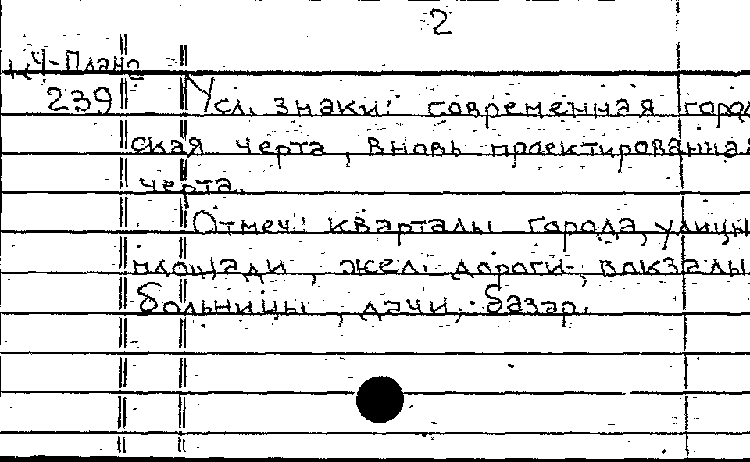 2
Ч-Плано
239 Усл. знаки: современная город
ская черта, вновь проектированная
черта.
Отмеч: кварталы города, улицы
площади, жел. дороги, вокзалы
больницы, дачи, базар.